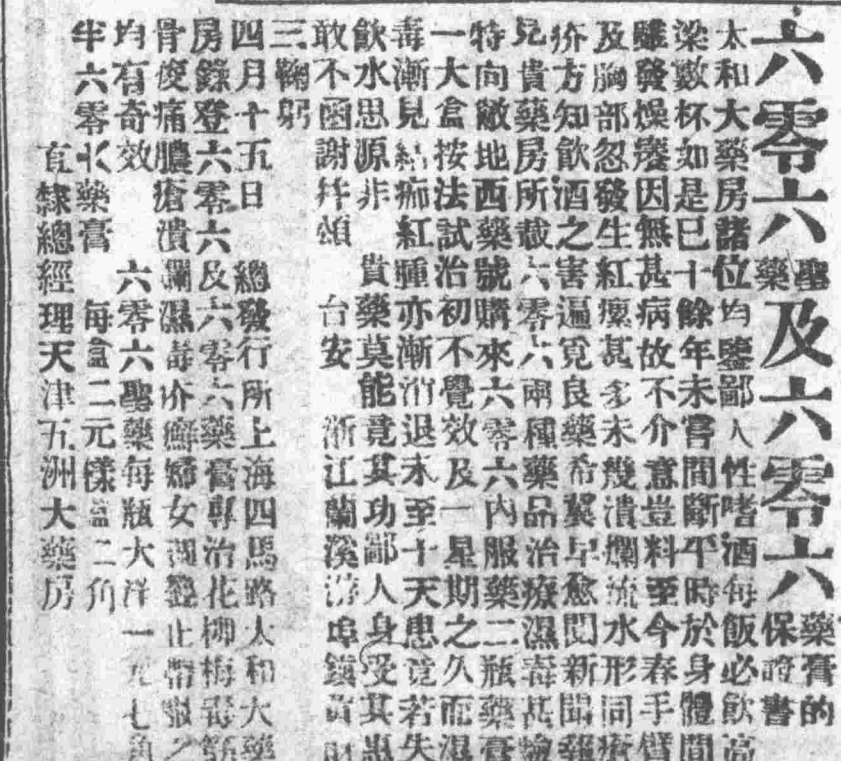 六零六聖藥及六零六藥膏的保證書
太和大藥房諸位均鑒鄙人性嗜酒每飯必飲高
梁數杯如是已十餘年未嘗間斷平時於身體間
雖發燥癢因無甚病故不介意豈料至今春手臂
及胸部忽發生紅瘰甚多未幾潰爛流水形同瘡
疥方知飲酒之害遍覓良藥希冀早愈閱新聞報
見貴藥房所載六零六兩種藥品治療濕毒甚驗
特向敝地西藥號購來六零六內服藥二瓶藥膏
一大盒按法試治初不覺效及一星期之久而濕
毒漸見結痂紅腫亦漸消退未至十天患竟若失
飲水思源非 貴藥莫能竟其功鄙人身受其惠
敢不函謝并頌 台安 浙江蘭溪游埠鎮黃
三鞠躬
四月十五日 總發行所上海四馬路太和大藥
房錄登六零六及六零六藥膏專治花柳梅毒筋
骨痠痛膿瘡潰爛濕毒疥癬婦女止帶之
均有奇效 六零六聖藥每瓶大洋一元七角
半六零六藥膏 每盒二元樣盒二角
直隸總經理天津五洲大藥房